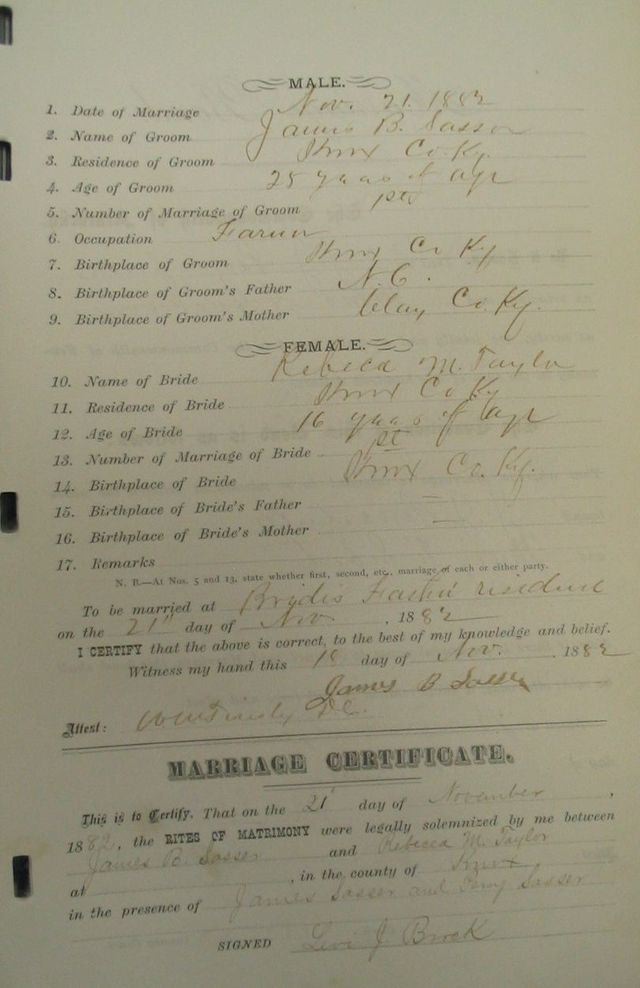 MALE.
1. Date of Marriage Nov. 21. 1882
2. Name of Groom James B. Sasser
3. Residence of Groom Knox Co. Ky.
4. Age of Groom 25 years of age
5. Number of Marriage of Groom 1st
6. Occupation Farmer
7. Birthplace of Groom Knox Co Ky
8. Birthplace of Groom's Father N. C.
9. Birthplace of Groom's Mother Clay Co. Ky.
FEMALE.
10. Name of Bride Rebeca M. Taylor
11. Residence of Bride Knox Co Ky
12. Age of Bride 16 years of age
13. Number of Marriage of Bride 1st
14. Birthplace of Bride Knox Co. Ky.
15. Birthplace of Bride's Father
16. Birthplace of Bride's Mother
17. Remarks
N. B.—At Nos. 5 and 13, state whether first, second, etc., marriage of each or either party.
To be married at Brydis residence
on the 21" day of Nov. , 1882
I CERTIFY that the above is correct, to the best of my knowledge and belief.
Witness my hand this 18 day of Nov. , 1882
James B Sasser
Attest:
MARRIAGE CERTIFICATE.
This is to Certify, That on the 21" day of November ,
1882, the RITES OF MATRIMONY were legally solemnized by me between
James B. Sasser and Rebecca M. Taylor
at , in the county of Knox
in the presence of James Sasser and Sasser
SIGNED Levi J Brock